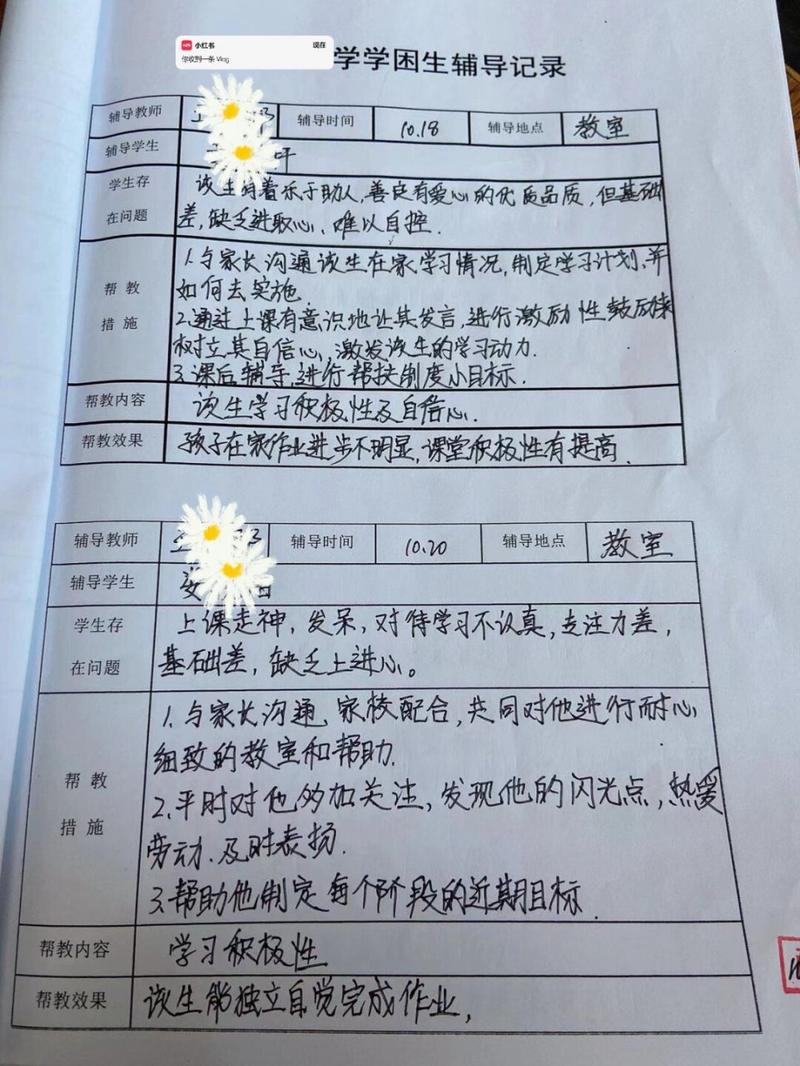 小红书 现在
你收到一条 Vlog
学学困生辅导记录
辅导教师 辅导时间 10.18 辅导地点 教室
辅导学生
学生存在问题 该生有着乐于助人,善良有爱心的优质品质,但基础
差,缺乏进取心、难以自控.
帮教措施 1.与家长沟通该生在家学习情况,制定学习计划,并
如何去实施.
2.通过上课有意识地让其发言,进行激励性鼓励
树立其自信心,激发该生的学习动力.
3.课后辅导,进行帮扶制度小目标.
帮教内容 该生学习积极性及自信心.
帮教效果 孩子在家作业进步不明显,课堂积极性有提高.
辅导教师 辅导时间 10.20 辅导地点 教室
辅导学生
学生存在问题 上课走神,发呆,对待学习不认真,专注力差,
基础差,缺乏上进心。
帮教措施 1.与家长沟通、家校配合,共同对他进行耐心
细致的教室和帮助.
2.平时对他多加关注,发现他的闪光点,热爱
劳动、及时表扬.
3.帮助他制定每个阶段的近期目标.
帮教内容 学习积极性
帮教效果 该生能独立自觉完成作业,